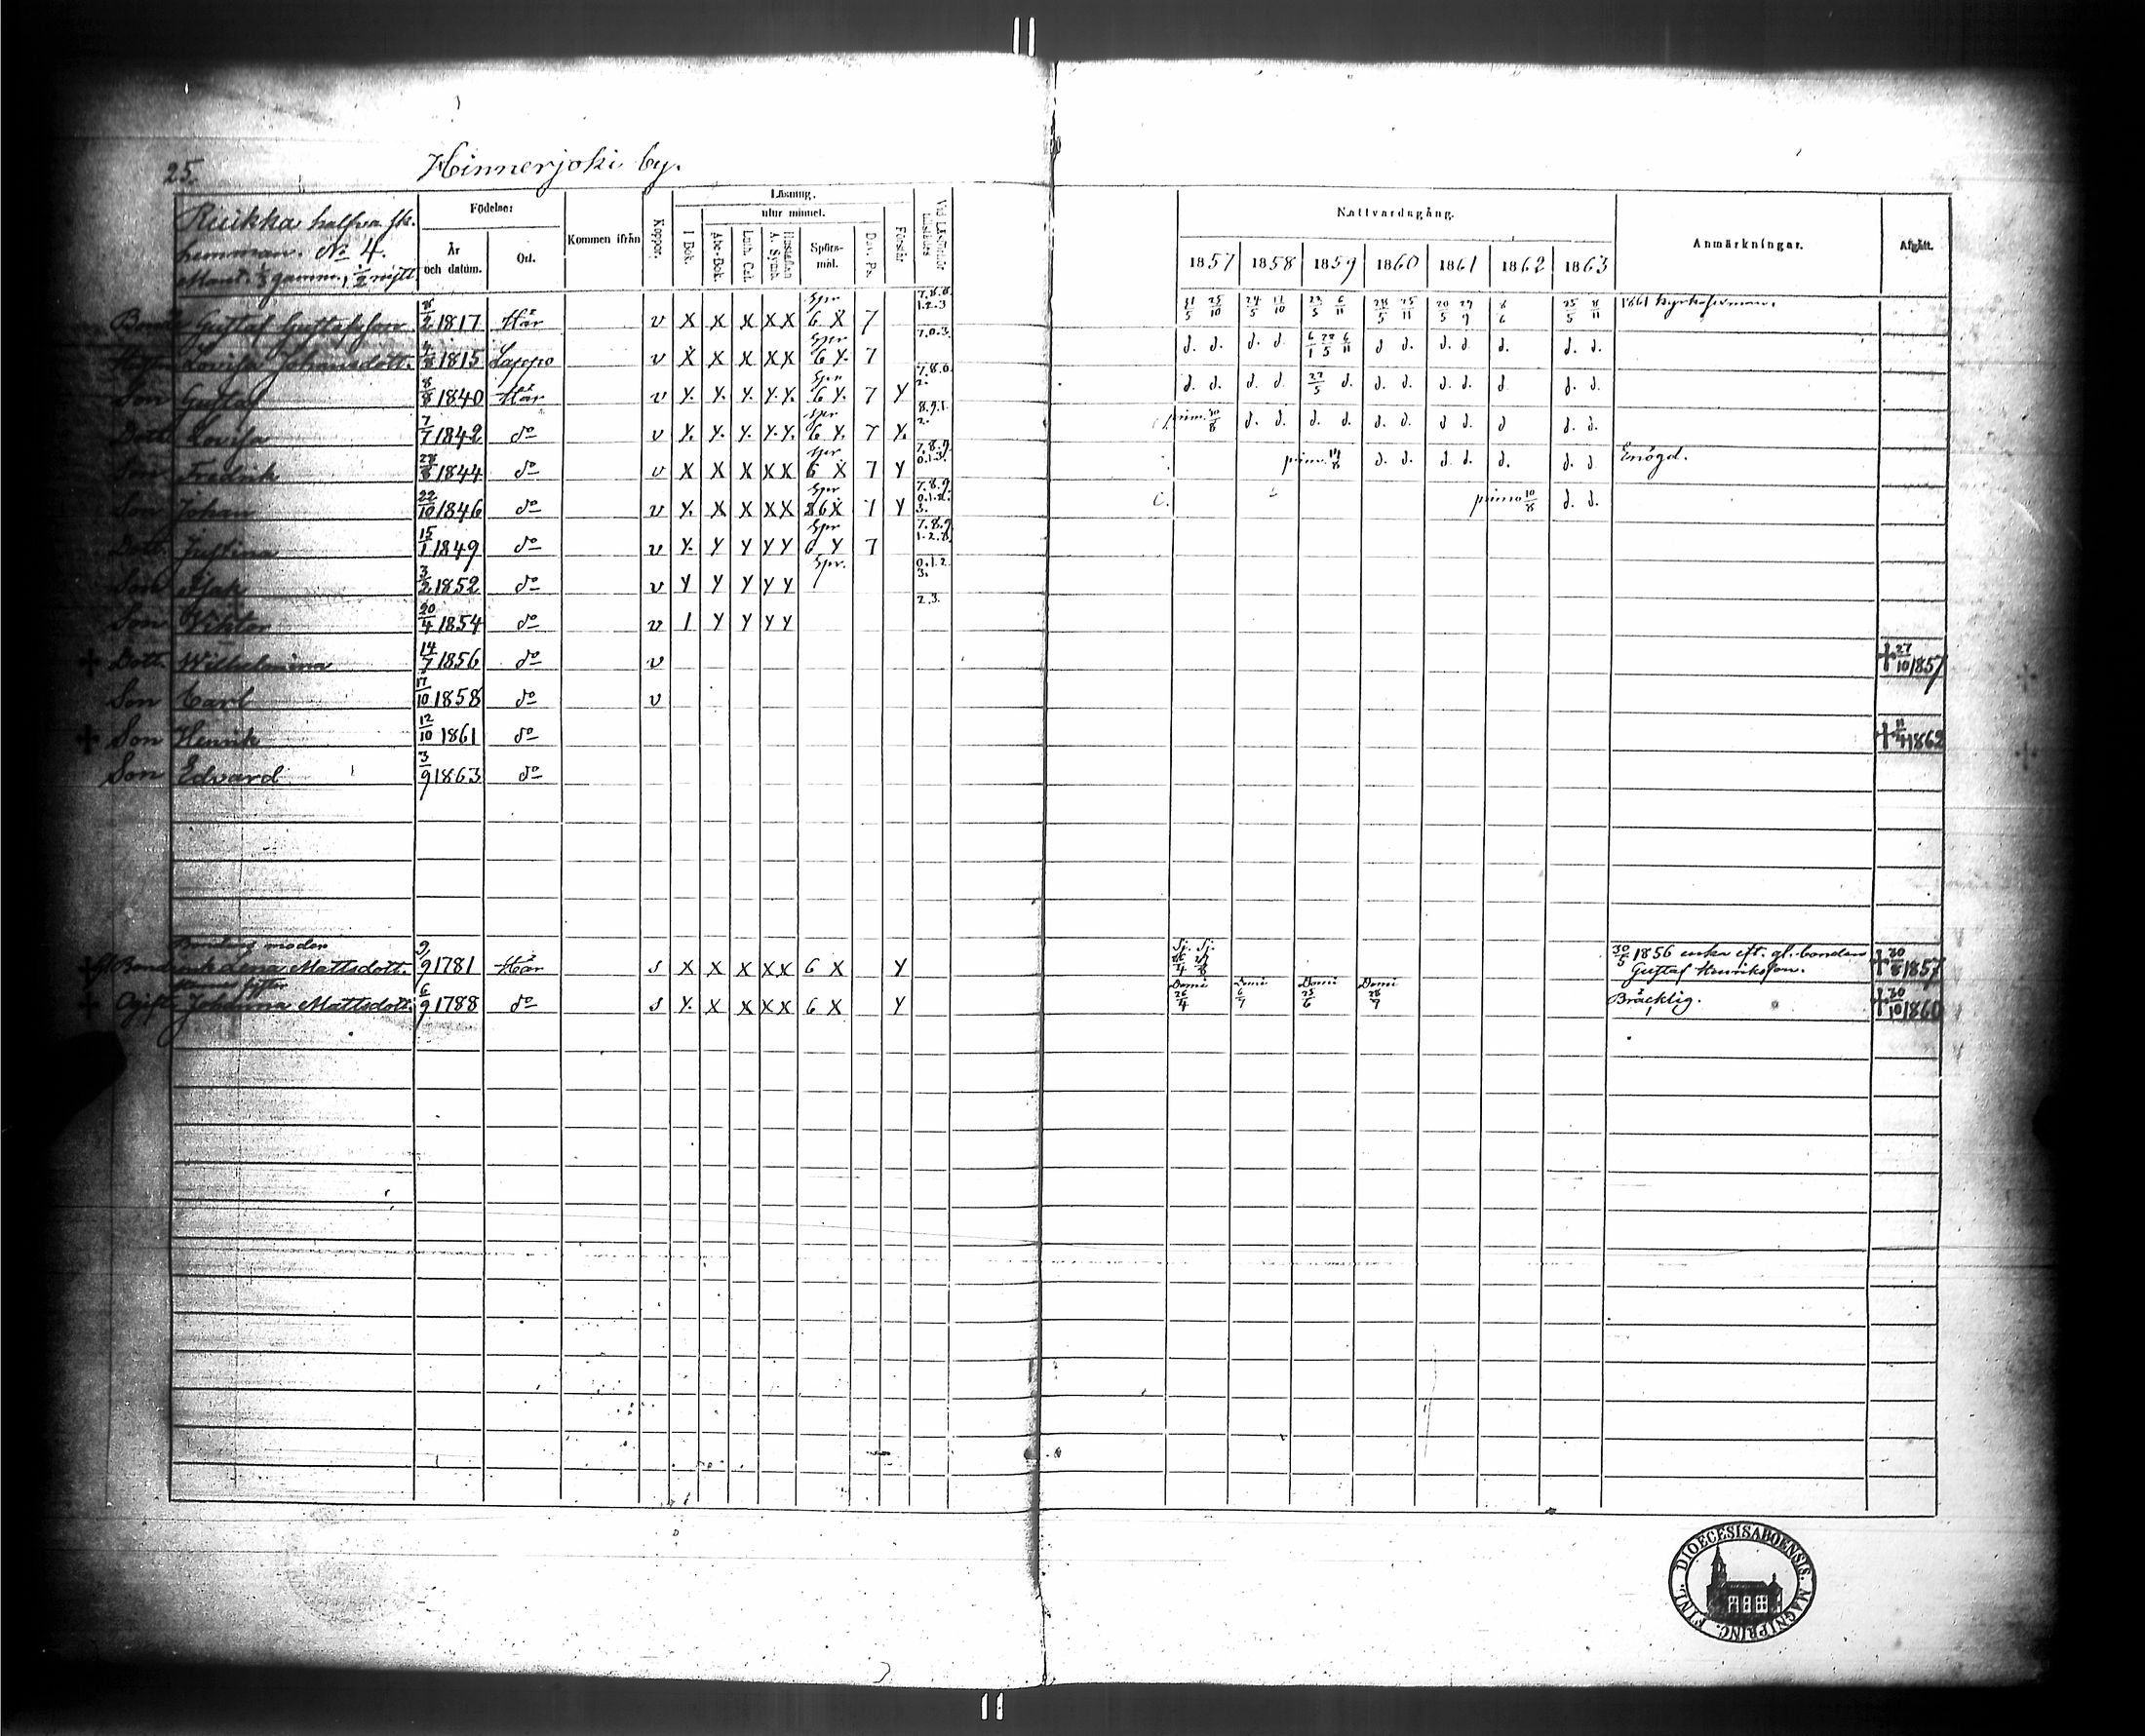 25.
Hinnerjoki by.
Ruikka halfva sk.
hemman. No 4.
Mant. 1/3 gamm., 1/2 nytt
Födelse:
År och datum.
Ort.
Kommen ifrån
Koppor.
Läsning.
utur minnet.
I Bok.
Abc-Bok.
Luth. Cat.
Hustaflan A. Symb.
Spörsmål.
Dav. Ps.
Förstår
Vid Läsförhör tillstädes
Nattvardsgång.
1857 1858 1859 1860 1861 1862 1863
Anmärkningar.
Afgått.
Bonde Gustaf Gustafsson 2 1817 Här v X X X XX Spr 6 X 7 7.8.0. 1.2.3 31/5 25/10 24/5 11/10 22/5 6/11 28/5 25/11 20/5 29/9 8/6 25/5 8/11 1861 kyrkoförman.
Lovisa Johansdott. 4/8 1815 Lappo v X X X XX Spr 6 Y. 7 7.0.3. d. d. d. d. 6/1 22/5 6/11 d d. d. d. d. d. d.
Son Gustaf 8/8 1840 Här v Y. Y. Y. Y.Y. Spr 6 Y. 7 Y 7.8.0 2. d. d. d. d. 22/5 d. d. d. d. d. d d. d.
Dott. Lovisa 7/7 1842 do v Y. Y. Y. Y.Y. Spr 6 Y. 7 Y. 8.9.1. 2. prim. 30/8 d. d. d. d. d. d. d d. d d. d.
Son Fredrik 28/8 1844 do v X X X XX Spr 6 X 7 Y 7.8.9. 0.1.3. prim. d. d. d. d. d. d. d. Enögd.
Son Johan 22/10 1846 do v Y. X X XX Spr 6 X Y 7.8.9 0.1.2. 3. primo 10/8 d. d.
Dott. Justina 15/1 1849 do v Y. Y Y Y Y Spr 6 Y 7 7.8.9. 1.2.3.
Son Isak 3/2 1852 do v Y Y Y Y Y Spr. 0.1.2 3.
Son Viktor 20/4 1854 do v 1 Y Y Y Y 2.3.
+ Dott. Wilhelmina 14/7 1856 do v + 27/10 1857
Son Carl 17/10 1858 do v
+ Son Henrik 12/10 1861 do + 11/4 1862
Son Edvard 3/9 1863 do
Bondens moder
Lena Mattsdott. 9/9 1781 Här s X X X XX 6 X Y 30/5 1856 enka eft. gl. bonden Gustaf Henriksson. + 30/8 1857
+ Ogift Johanna Mattsdott. 6/9 1788 do s Y. X X XX 6 X Y Domi 26/4 Domi 6/7 Domi 25/6 Domi 28/7 Bräcklig. + 30/10 1860
FINL. DIOECESIS ABOENSIS. MAGNI PRINC.